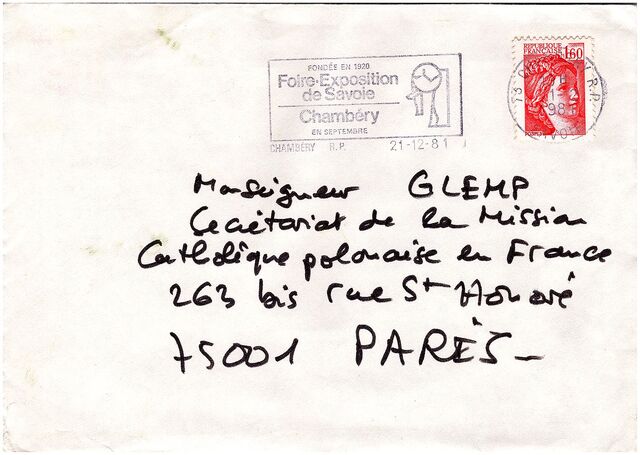 FONDÉE EN 1920
Foire-Exposition
de Savoie
Chambéry
EN SEPTEMBRE
CHAMBÉRY R.P. 21-12-81
REPUBLIQUE
FRANÇAISE 1,60
73 R.P.
Monseigneur GLEMP
Secrétariat de la Mission
Catholique polonaise en France
263 bis rue St Honoré
75001 PARIS-